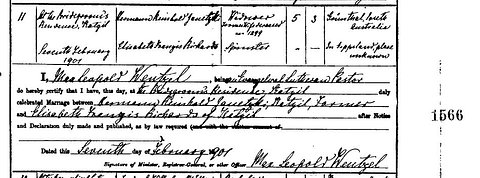 11 At the Bridegroom's Hermann Reinhold Janetzki Widower 5 3 
Residence, Natgil
Seventh February Elisabeth Francis Richards Spinster
1901
1899
Australia
In England place
unknown
I, Max Leopold Wentzel, being Evangelical Lutheran Pastor
do hereby certify that I have, this day, at the Bridegroom's Residence, Natgil duly
celebrated Marriage between Hermann Reinhold Janetzki, Natgil, Farmer
and Elisabeth Francis Richards of Natgil after Notice
and Declaration duly made and published, as by law required (and with the written consent of
Dated this Seventh day of February 1901
Signature of Minister, Registrar-General, or other Officer Max Leopold Wentzel
1566